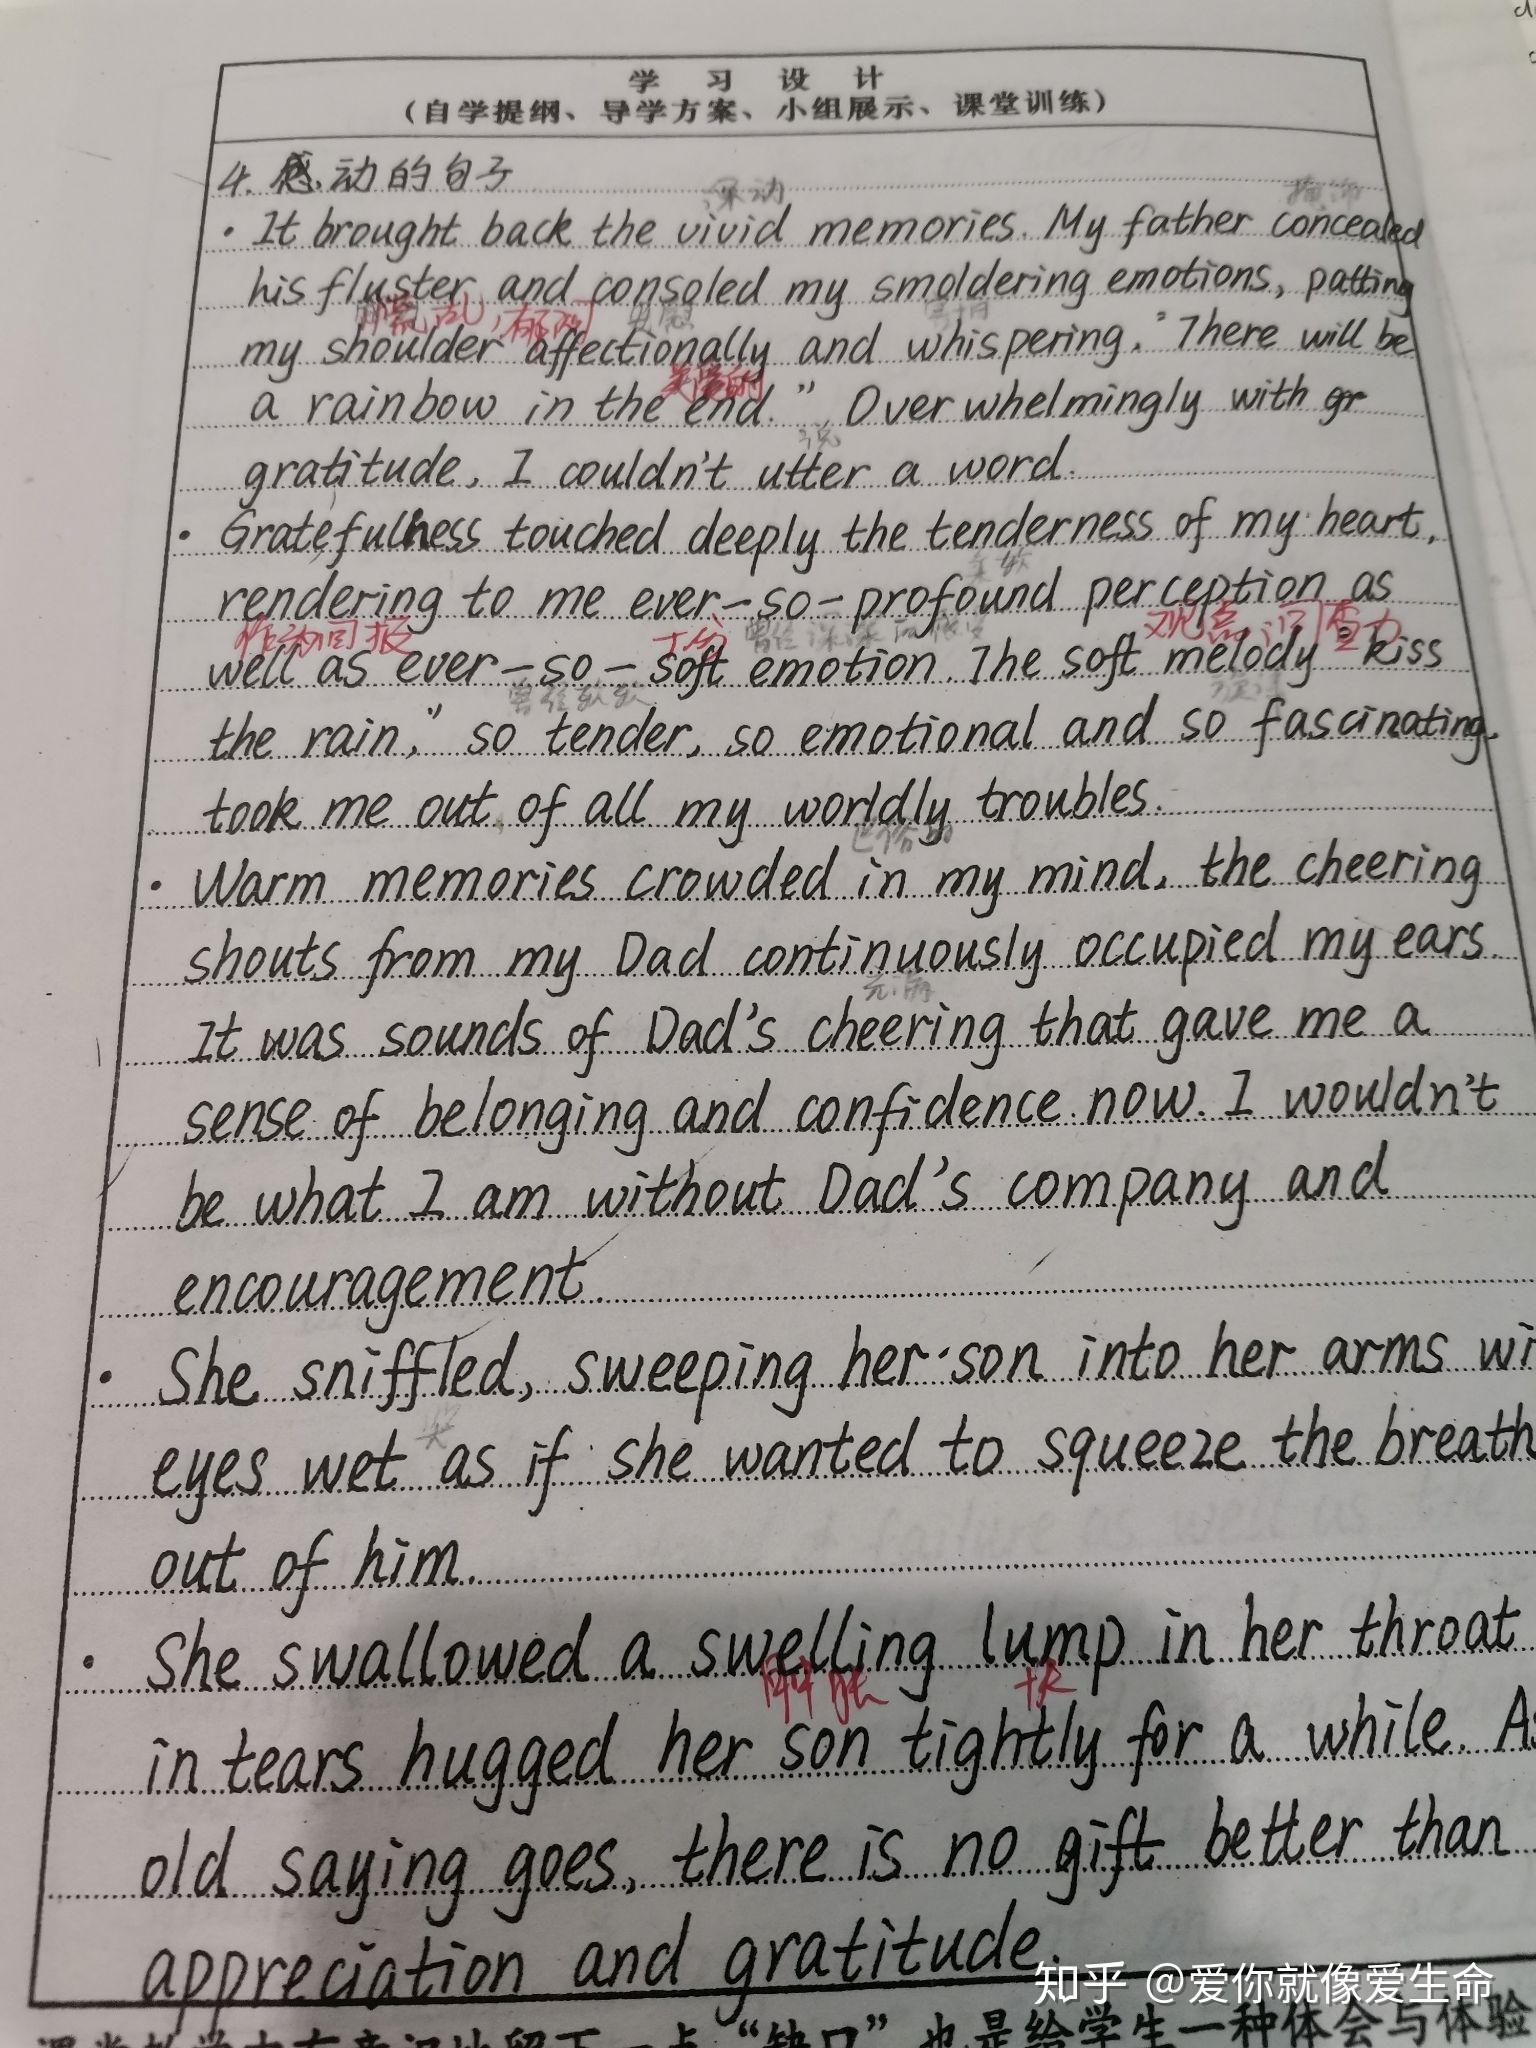 学 习 设 计
（自学提纲、导学方案、小组展示、课堂训练）
4. 感动的句子
· It brought back the vivid memories. My father concealed
his fluster and consoled my smoldering emotions, patting
慌乱，
my shoulder affectionally and whispering, "There will be
a rainbow in the end." Overwhelmingly with gr
gratitude, I couldn't utter a word.
· Gratefulness touched deeply the tenderness of my heart,
rendering to me ever-so-profound perception as
作为回报 十分 观点，洞察力
well as ever-so-soft emotion. The soft melody "kiss
the rain," so tender, so emotional and so fascinating,
took me out of all my worldly troubles.
世俗的
· Warm memories crowded in my mind, the cheering
shouts from my Dad continuously occupied my ears.
充满
It was sounds of Dad's cheering that gave me a
sense of belonging and confidence now. I wouldn't
be what I am without Dad's company and
encouragement.
· She sniffled, sweeping her son into her arms wi
哭
eyes wet as if she wanted to squeeze the breath
out of him.
· She swallowed a swelling lump in her throat
肿胀 块
in tears hugged her son tightly for a while. As
old saying goes, there is no gift better than
appreciation and gratitude.
知乎 @爱你就像爱生命
“缺口”也是给学生一种体会与体验